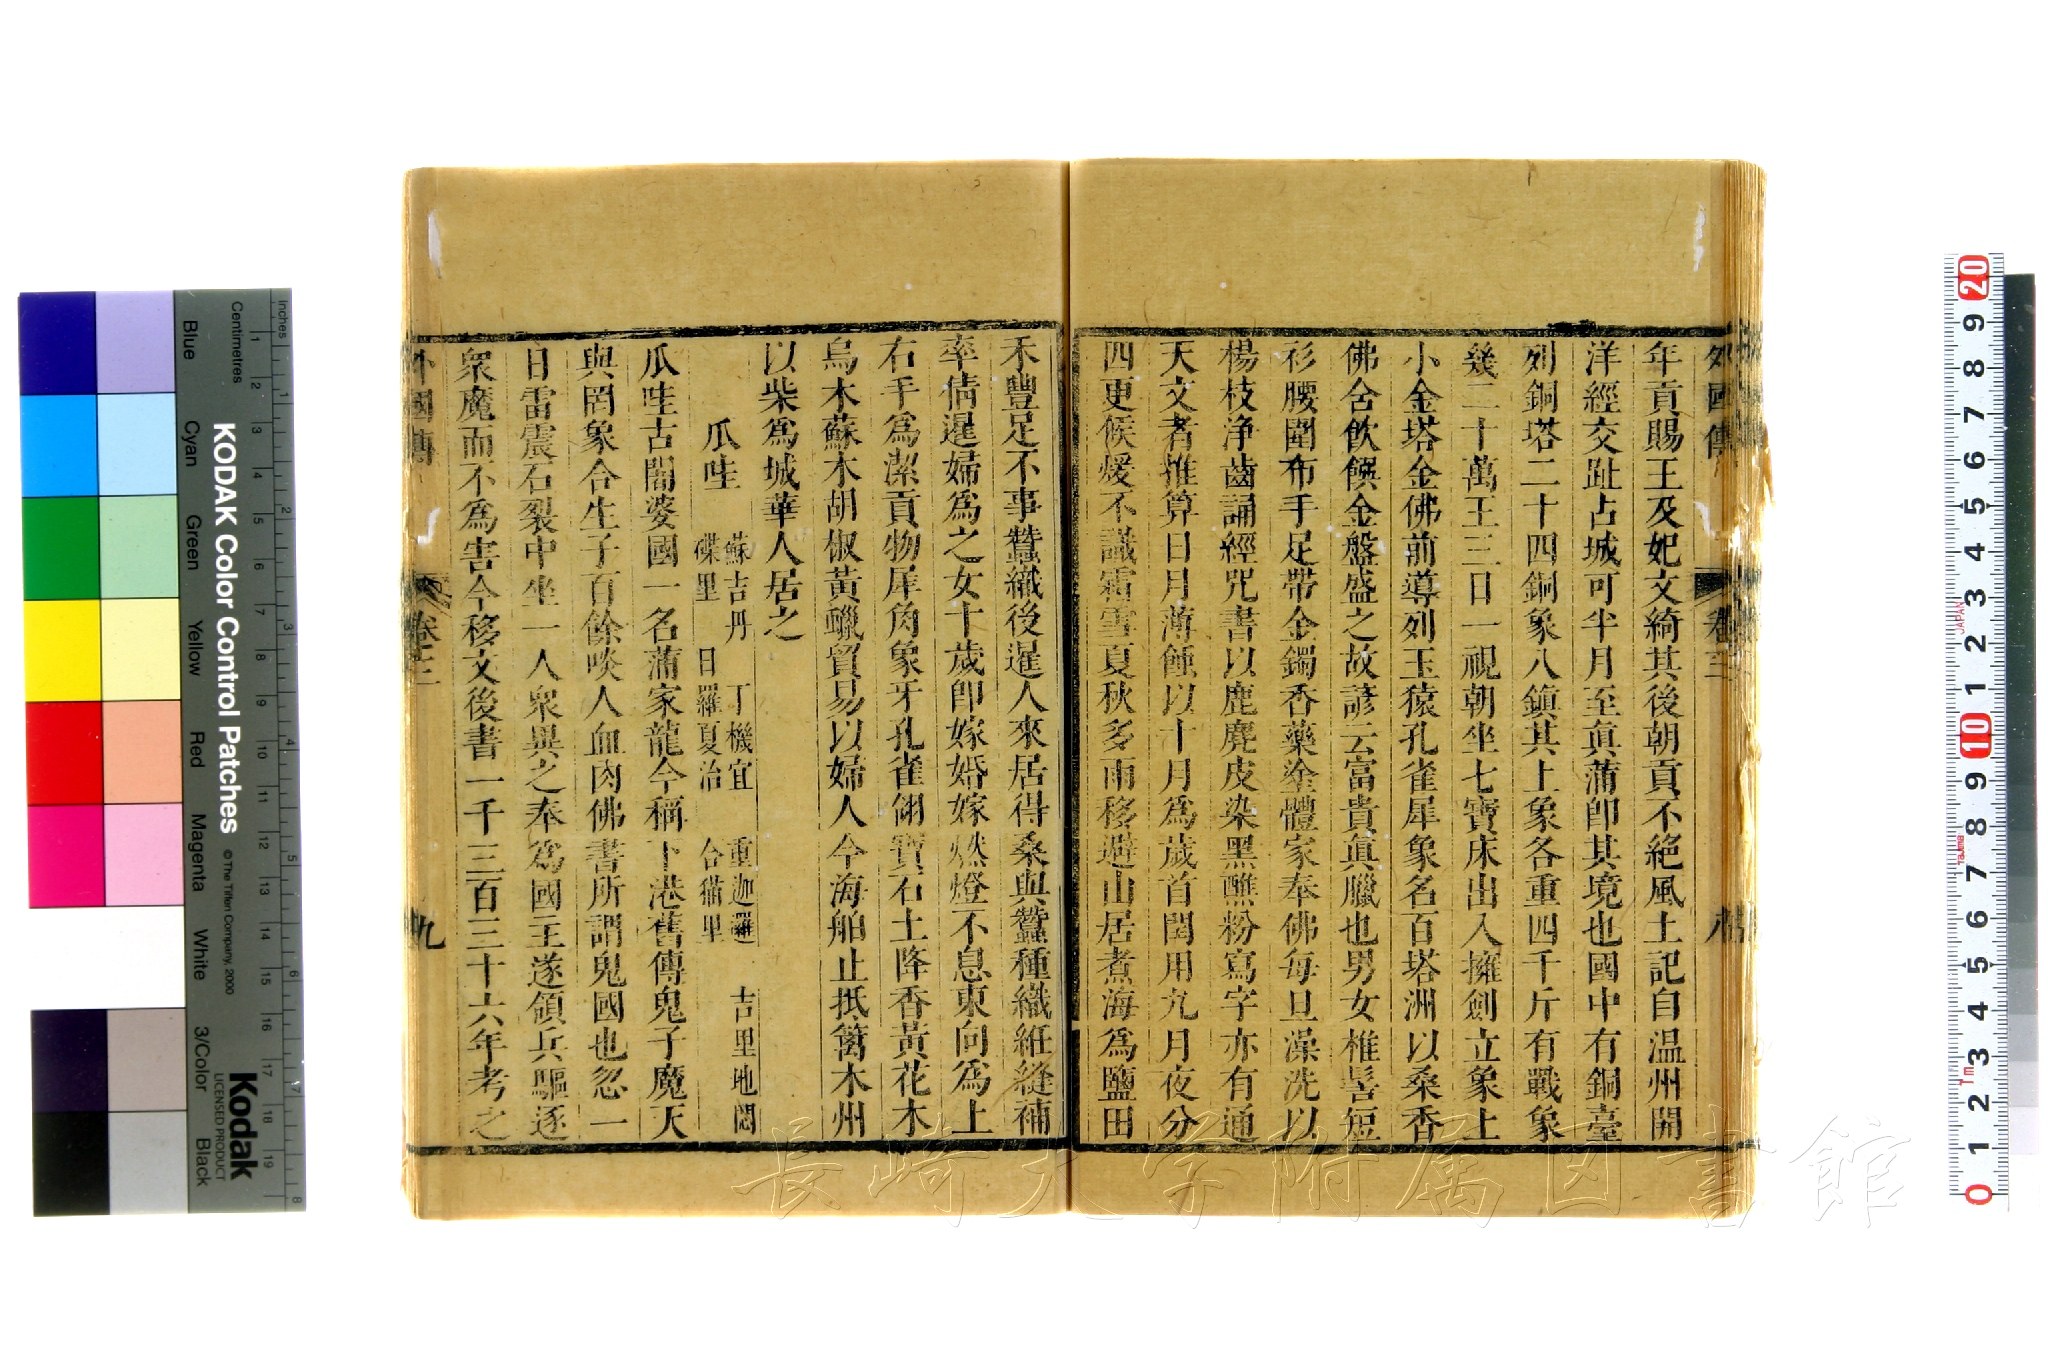 外國傳 卷三
年貢賜王及妃文綺其後朝貢不絕風土記自温州開
洋經交趾占城可半月至眞蒲卽其境也國中有銅臺
列銅塔二十四銅象八鎮其上象各重四千斤有戰象
幾二十萬王三日一視朝坐七寶床出入擁劍立象上
小金塔金佛前導列玉猿孔雀犀象名百塔洲以桑香
佛舍飲饌金盤盛之故諺云富貴眞臘也男女椎髻短
衫腰圍布手足帶金鐲香藥塗體家奉佛每旦澡洗以
楊枝淨齒誦經咒書以鹿麂皮染黑醮粉寫字亦有通
天文者推算日月薄蝕以十月爲歲首閏用九月夜分
四更候煖不識霜雪夏秋多雨移避山居煮海爲鹽田
禾豐足不事蠶織後暹人來居得桑與蠶種織紝縫補
率倩暹婦爲之女十歲卽嫁婚嫁燃燈不息東向爲上
右手爲潔貢物犀角象牙孔雀翎寶石土降香黃花木
烏木蘇木胡椒黃蠟貿易以婦人今海舶止抵籬木州
以柴爲城華人居之
瓜哇 蘇吉丹 丁機宜 重迦羅 吉里地悶
碟里 日羅夏治 合猫里
瓜哇古闍婆國一名蒲家龍今稱下港舊傳鬼子魔天
與罔象合生子百餘啖人血肉佛書所謂鬼國也忽一
日雷震石裂中坐一人衆異之奉爲國王遂領兵驅逐
衆魔而不爲害今移文後書一千三百三十六年考之
外國傳 卷三 九
長崎大学附属図書館
KODAK Color Control Patches
© The Tiffen Company, 2000
Kodak
LICENSED PRODUCT
Inches
Centimetres
Blue
Cyan
Green
Yellow
Red
Magenta
White
3/Color
Black
JAPAN
Tajima